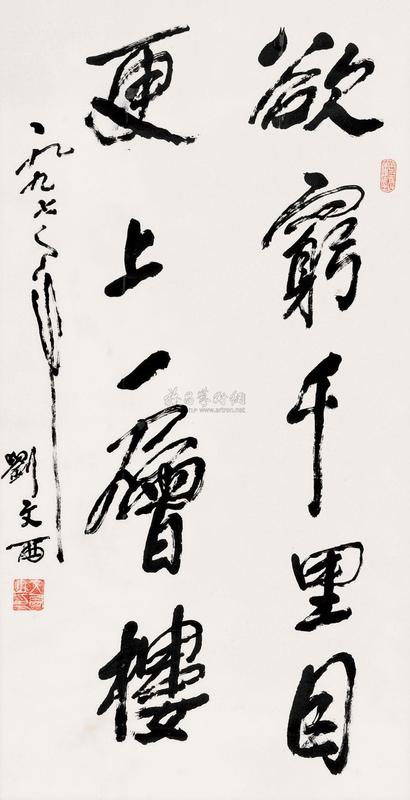 欲窮千里目
更上一層樓
一九九七年
劉文西
雅昌藝術網
www.artron.net